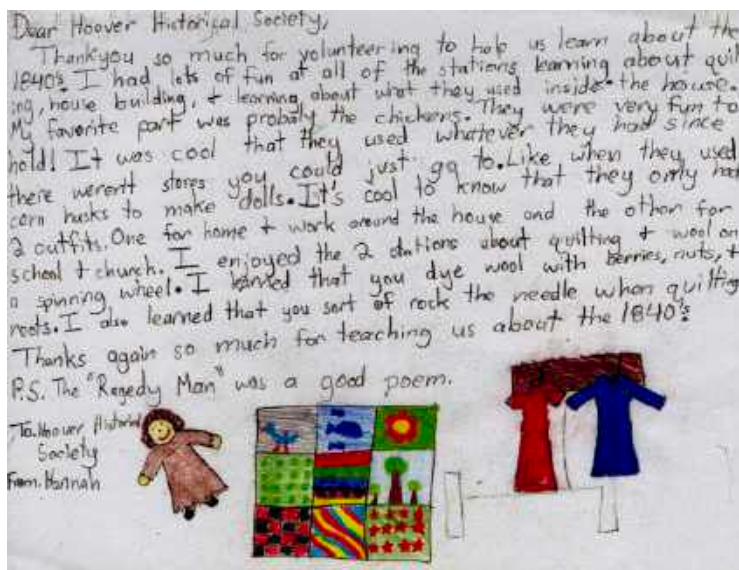 Dear Hoover Historical Society,
Thankyou so much for volunteering to help us learn about the
1840's. I had lots of fun at all of the stations learning about quil
ing, house building, + learning about what they used inside the house.
My favorite part was probaly the chickens. They were very fun to
hold! It was cool that they used whatever they had since
there weren't stores you could just go to. Like when they used
corn husks to make dolls. It's cool to know that they only had
2 outfits. One for home + work around the house and the other for
school + church. I enjoyed the 2 stations about quilting + wool on
a spinning wheel. I learned that you dye wool with berries, nuts, +
roots. I also learned that you sort of rock the needle when quilting
Thanks again so much for teaching us about the 1840's.
P.S. The "Ragedy Man" was a good poem.
To. Hoover Historial
Society
From. Hannah